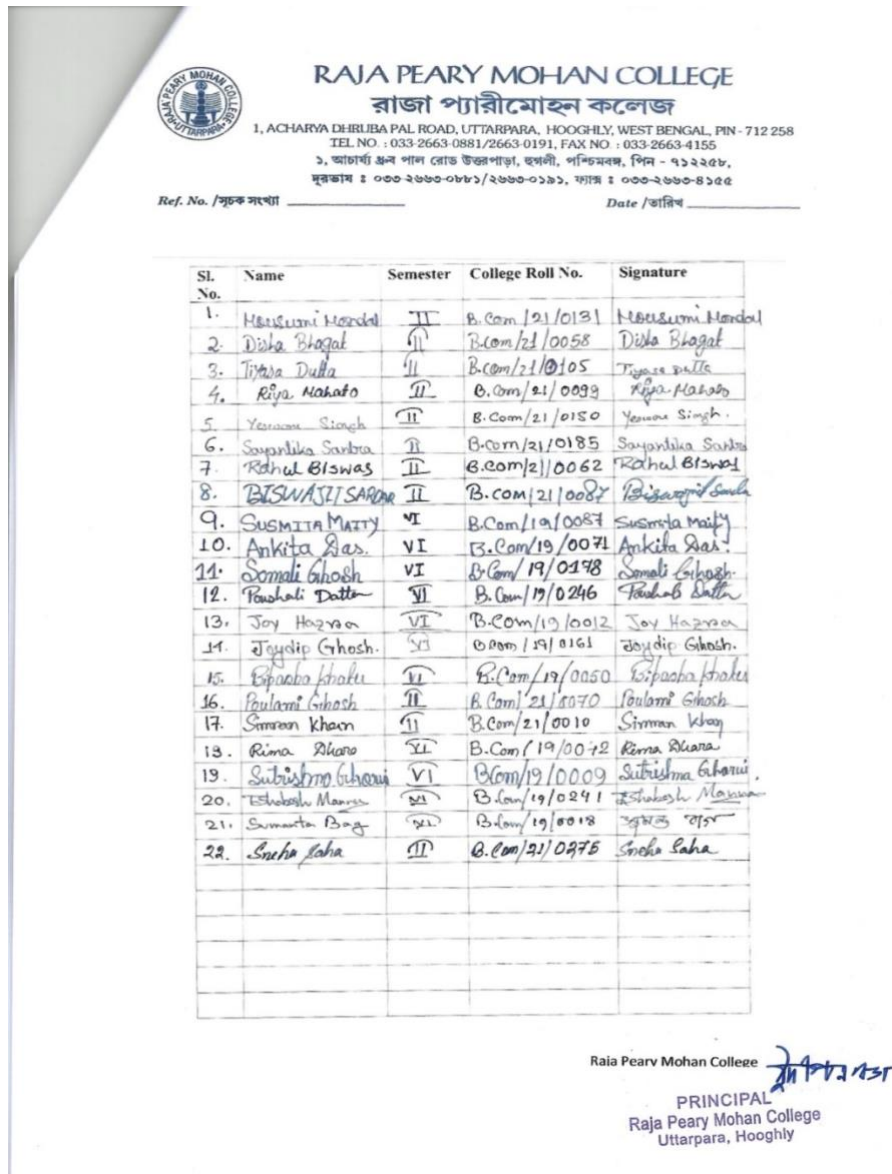 RAJA PEARY MOHAN COLLEGE UTTARPARA
RAJA PEARY MOHAN COLLEGE
রাজা প্যারীমোহন কলেজ
1, ACHARYA DHRUBA PAL ROAD, UTTARPARA, HOOGHLY, WEST BENGAL, PIN - 712 258
TEL NO. : 033-2663-0881/2663-0191, FAX NO. : 033-2663-4155
১, আচার্য্য ধ্রুব পাল রোড উত্তরপাড়া, হুগলী, পশ্চিমবঙ্গ, পিন - ৭১২২৫৮,
দূরভাষ ঃ ০৩৩-২৬৬৩-০৮৮১/২৬৬৩-০১৯১, ফ্যাক্স ঃ ০৩৩-২৬৬৩-৪১৫৫
Ref. No. /সূচক সংখ্যা Date /তারিখ
Sl. No. Name Semester College Roll No. Signature
1. Mousumi Mondal II B.Com/21/0131 Mousumi Mondal
2. Disha Bhagat II B.com/21/0058 Disha Bhagat
3. Tiyasa Dutta II B.com/21/0105 Tiyasa Dutta
4. Riya Mahato II B.Com/21/0099 Riya Mahato
5. Singh II B.Com/21/0150 Singh.
6. Sayantika Santra II B.com/21/0185 Sayantika Santra
7. Rahul BISWAS II B.com/21/0062 Rahul BISWAS
8. BISWAJIT SARDAR II B.com/21/0087
9. SUSMITA MAITY VI B.Com/19/0087 Susmita Maity
10. Ankita Das. VI B.Com/19/0071 Ankita Das.
11. Somali Ghosh VI B.Com/19/0198 Somali Ghosh.
12. Poushali Datta VI B.Com/19/0246 Poushali Datta
13. Joy Hazra VI B.Com/19/0012 Joy Hazra
14. Joydip Ghosh. VI B.com/19/0161 Joydip Ghosh.
15. Bipasha VI B.Com/19/0050 Bipasha
16. Poulami Ghosh II B.Com/21/0070 Poulami Ghosh
17. Simran Khan II B.Com/21/0010 Simran Khan
18. Rima Dhara VI B.Com/19/0072 Rima Dhara
19. Sutrishna Gharui VI B.Com/19/0009 Sutrishna Gharui.
20. Manna VI B.Com/19/0241 Manna
21. Sumanta Bag VI B.Com/19/0018
22. Sneha Saha II B.Com/21/0275 Sneha Saha
Raja Peary Mohan College
PRINCIPAL
Raja Peary Mohan College
Uttarpara, Hooghly